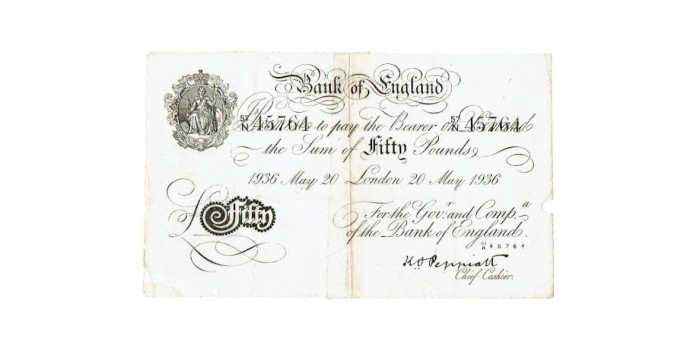 Bank of England
57/N 45764 57/N 45764
I Promise to pay the Bearer on Demand
the Sum of Fifty Pounds
1936 May 20 London 20 May 1936
£ Fifty
For the Gov.r and Comp.a
of the Bank of England.
57/N 45764
K O Peppiatt
Chief Cashier.